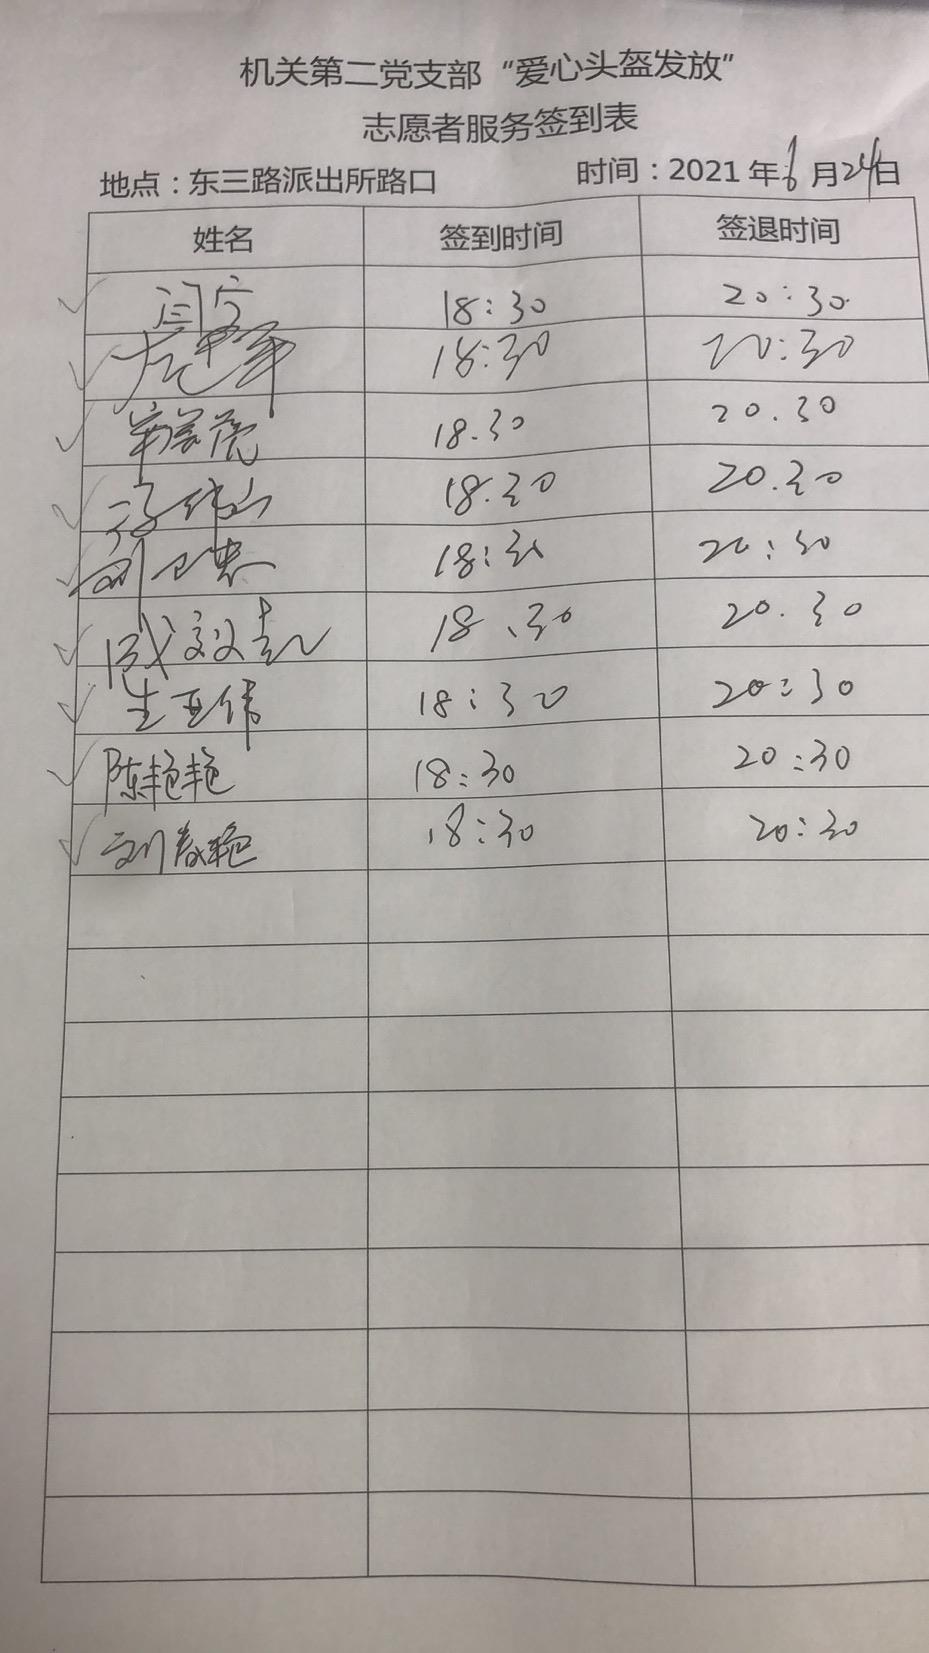 机关第二党支部“爱心头盔发放”
志愿者服务签到表
地点：东三路派出所路口 时间：2021年6月24日
姓名 签到时间 签退时间
闫宁 18:30 20:30
18:30 20:30
18.30 20.30
18.30 20.30
刘卫忠 18:30 20:30
18.30 20.30
生亚伟 18:30 20:30
陈艳艳 18:30 20:30
刘春艳 18:30 20:30